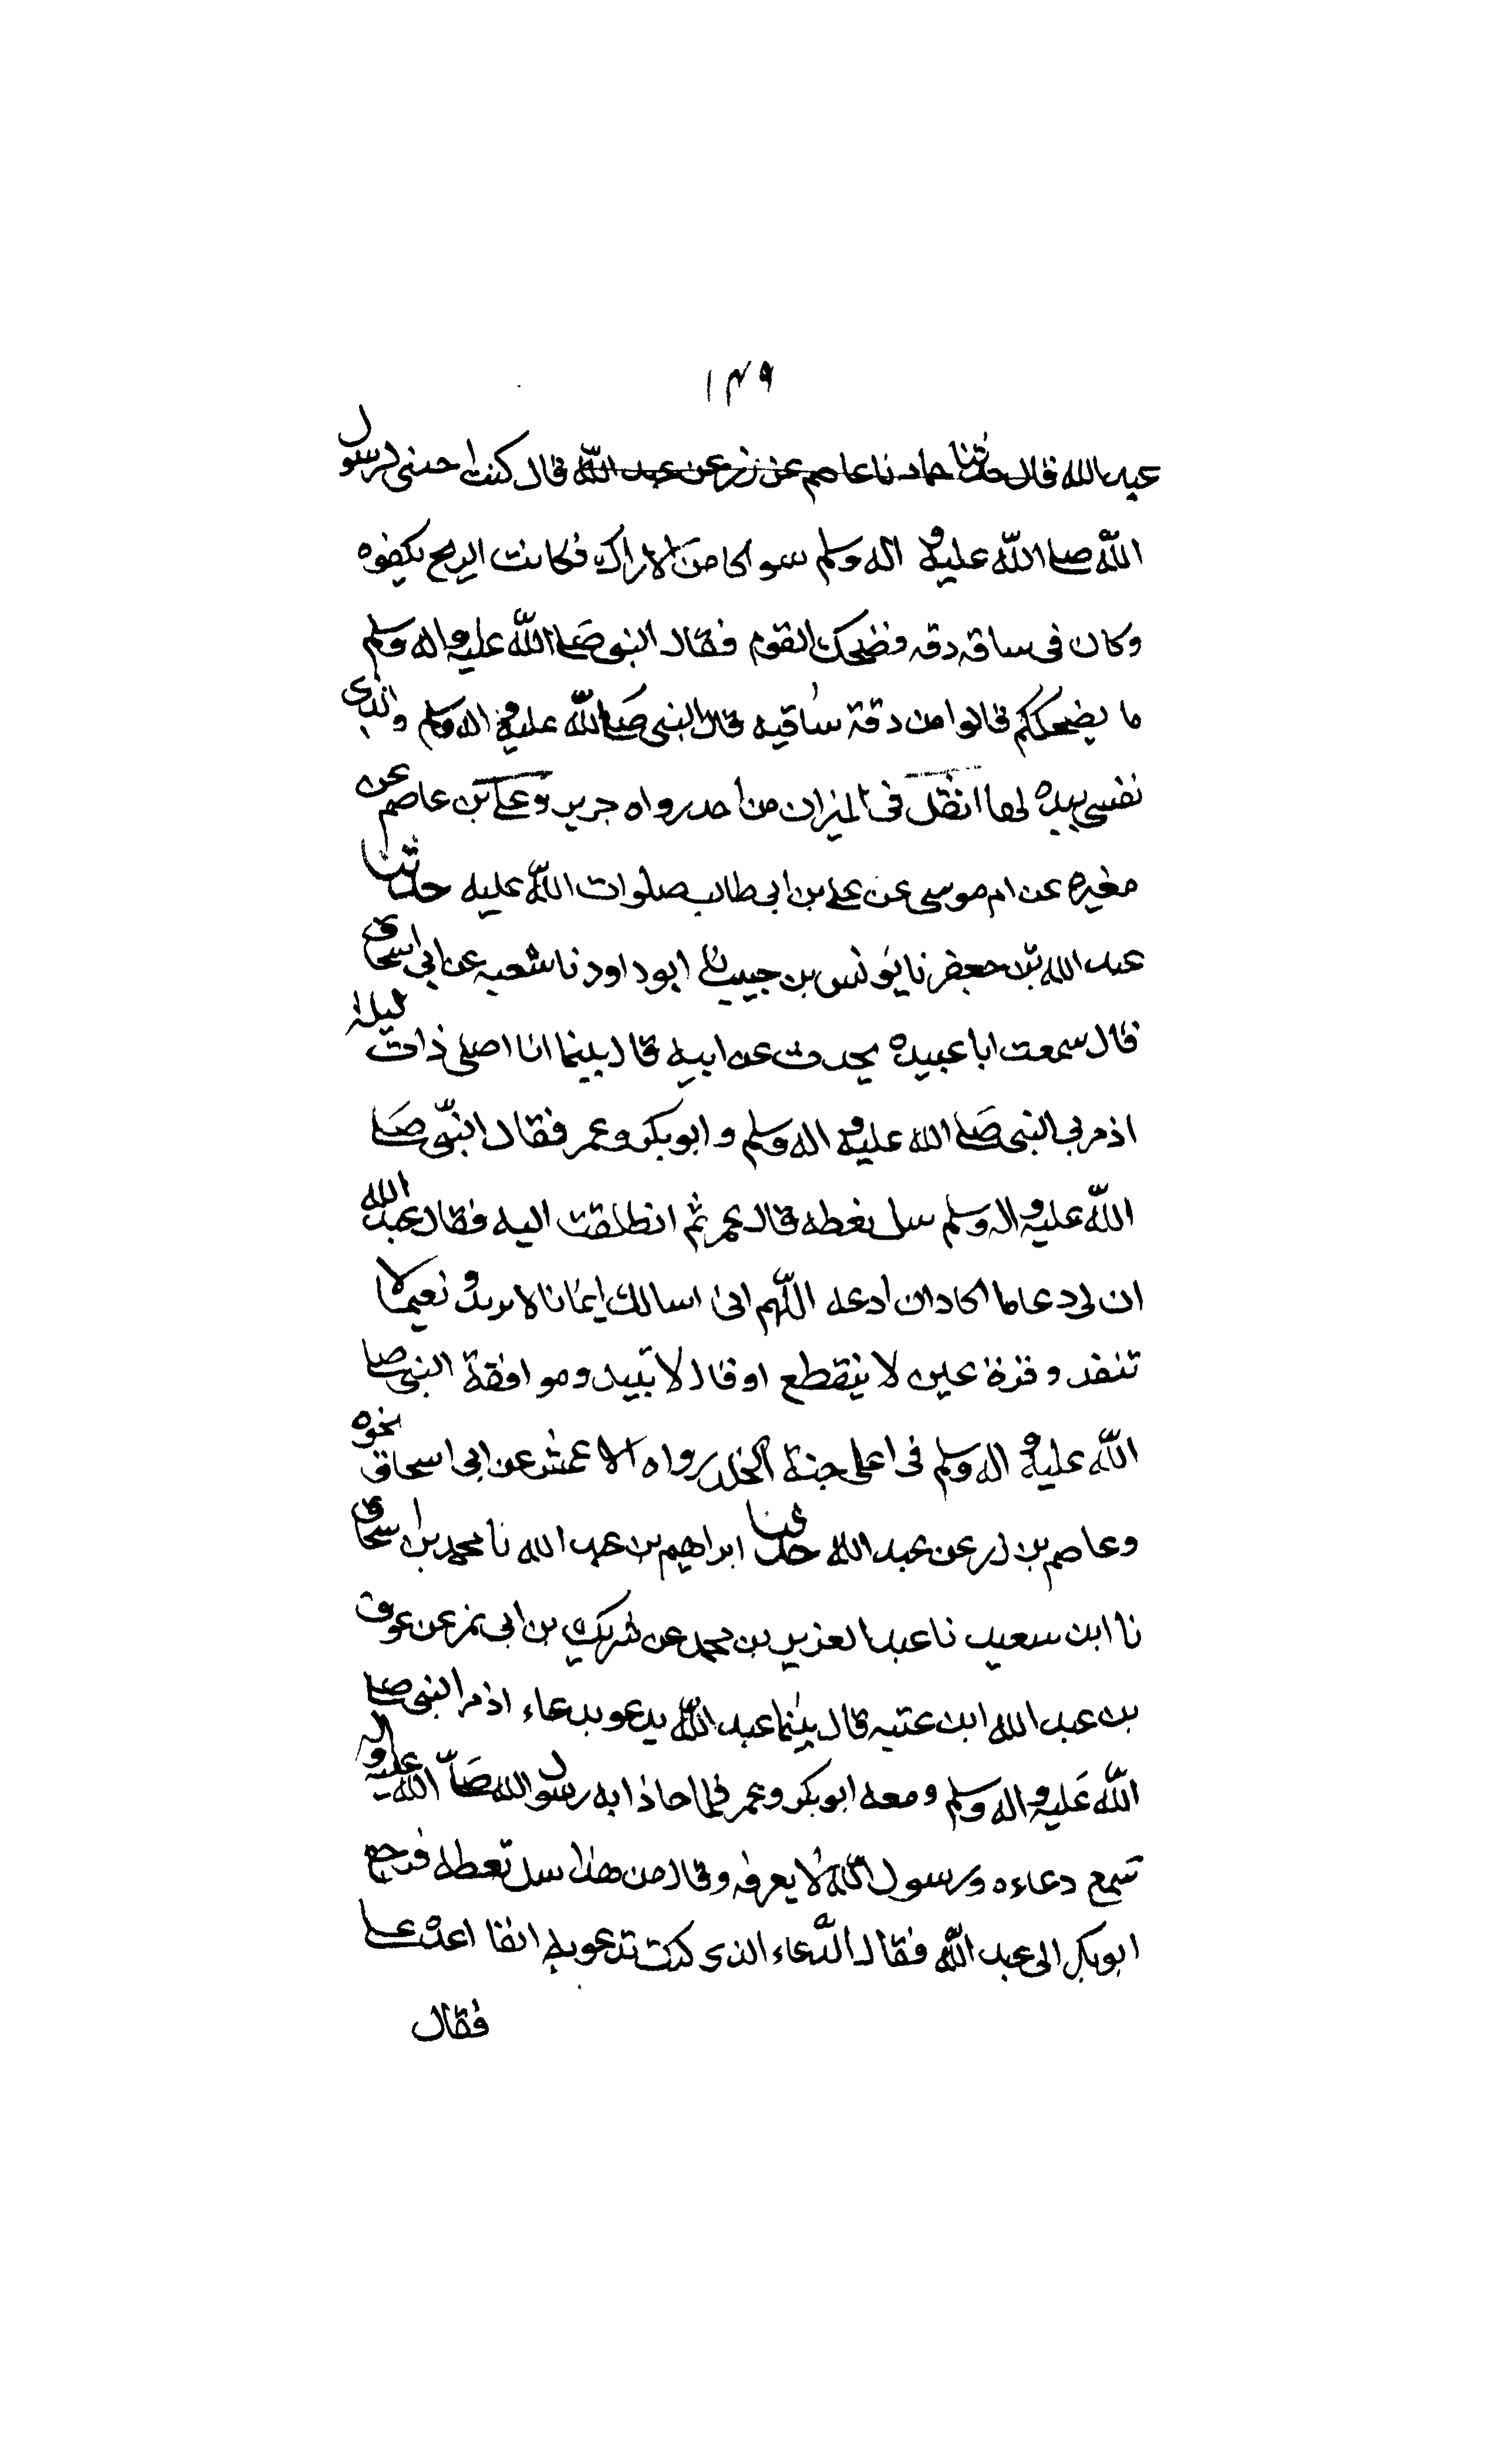 ١٤٩
عبد الله قال حدثنا حماد نا عاصم عن زر عن عبد الله قال كنت اجتنى لرسول
الله صلى الله عليه و اله وسلم سواكا من الاراك فكانت الريح يكفوه
وكان فى ساقه دقه فضحك القوم فقال النبى صلى الله عليه واله وسلم
ما يضحككم قالوا من دقة ساقيه قال النبى صلى الله عليه و اله وسلم والذى
نفسى بيده لهما اثقل فى الميزان من احد رواه جرير وعلى بن عاصم عن
مغيره عن ام موسى عن على بن ابى طالب صلوات الله عليه حدثنا
عبد الله بن جعفر نا يونس بن حبيب نا ابو داود نا شعبه عن ابى اسحاق
قال سمعت ابا عبيده يحدث عن ابيه قال بينما انا اصلى ذات ليلة
اذ مر بى النبى صلى الله عليه و اله وسلم و ابو بكر و عمر فقال النبى صلى
الله عليه و اله وسلم سل تعطه قال عمر ثم انطلقت اليه فقال عبد الله
ان لى دعا ما اكاد ان ادعه اللهم انى اسالك ايمانا لا يرتد و نعيما لا
تنفد و قرة عين لا ينقطع او قال لا تبيد ومو افقة النبى صلى
الله عليه و اله وسلم فى اعلى جنة الخلد رواه الاعمش عن ابى اسحاق نحوه
وعاصم بن زر عن عبد الله حدثنا ابراهيم بن عبد الله نا محمد بن اسحاق
نا ابن سعيد نا عبد العزيز بن محمد عن شريك بن ابى نمر عن عوف
بن عبد الله ابن عتبه قال بينما عبد الله يدعو بدعاء اذ مر النبى صلى
الله عليه و اله وسلم و معه ابو بكر و عمر فلما حاذا به رسول الله صلى الله عليه واله
تسمع دعاءه ورسول الله لا يعرفه وقال من هذا سل تعطه فرجع
ابو بكر الى عبد الله فقال الدعاء الذى كنت تدعو به انفا اعده على
فقال